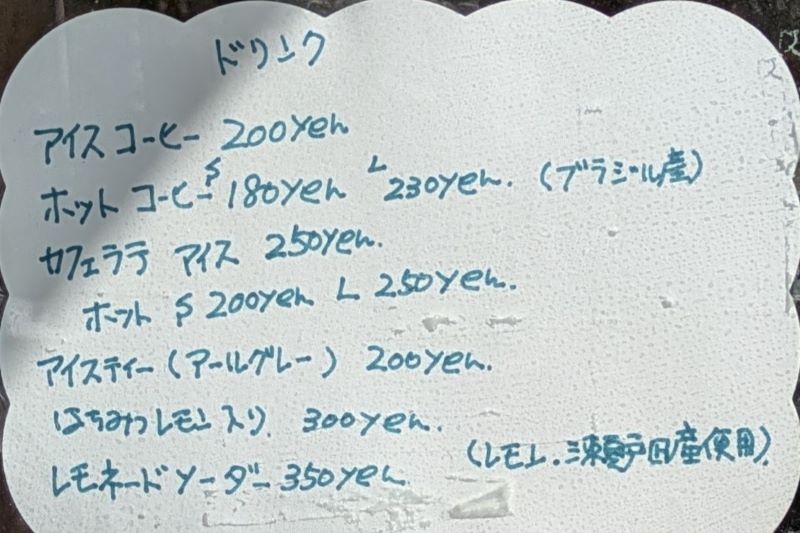 ドリンク
アイスコーヒー 200yen
ホット コーヒー S 180yen L 230yen. (ブラジール産)
カフェラテ アイス 250yen.
ホット S 200yen L 250yen.
アイスティー(アールグレー) 200yen.
はちみつレモン入り. 300yen.
レモネードソーダー 350yen. (レモン.瀬戸田産使用)